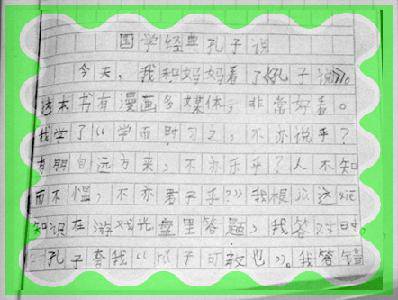 国学经典孔子说
今天，我和妈妈看了《孔子说》。
这本书有漫画多媒体，非常好看。
我学了“学而时习之，不亦说乎？
有朋自远方来，不亦乐乎？人不知
而不愠，不亦君子乎？”我根据这些
知识在游戏光盘里答题，我答对时，
孔子夸我“孺子可教也”。我答错